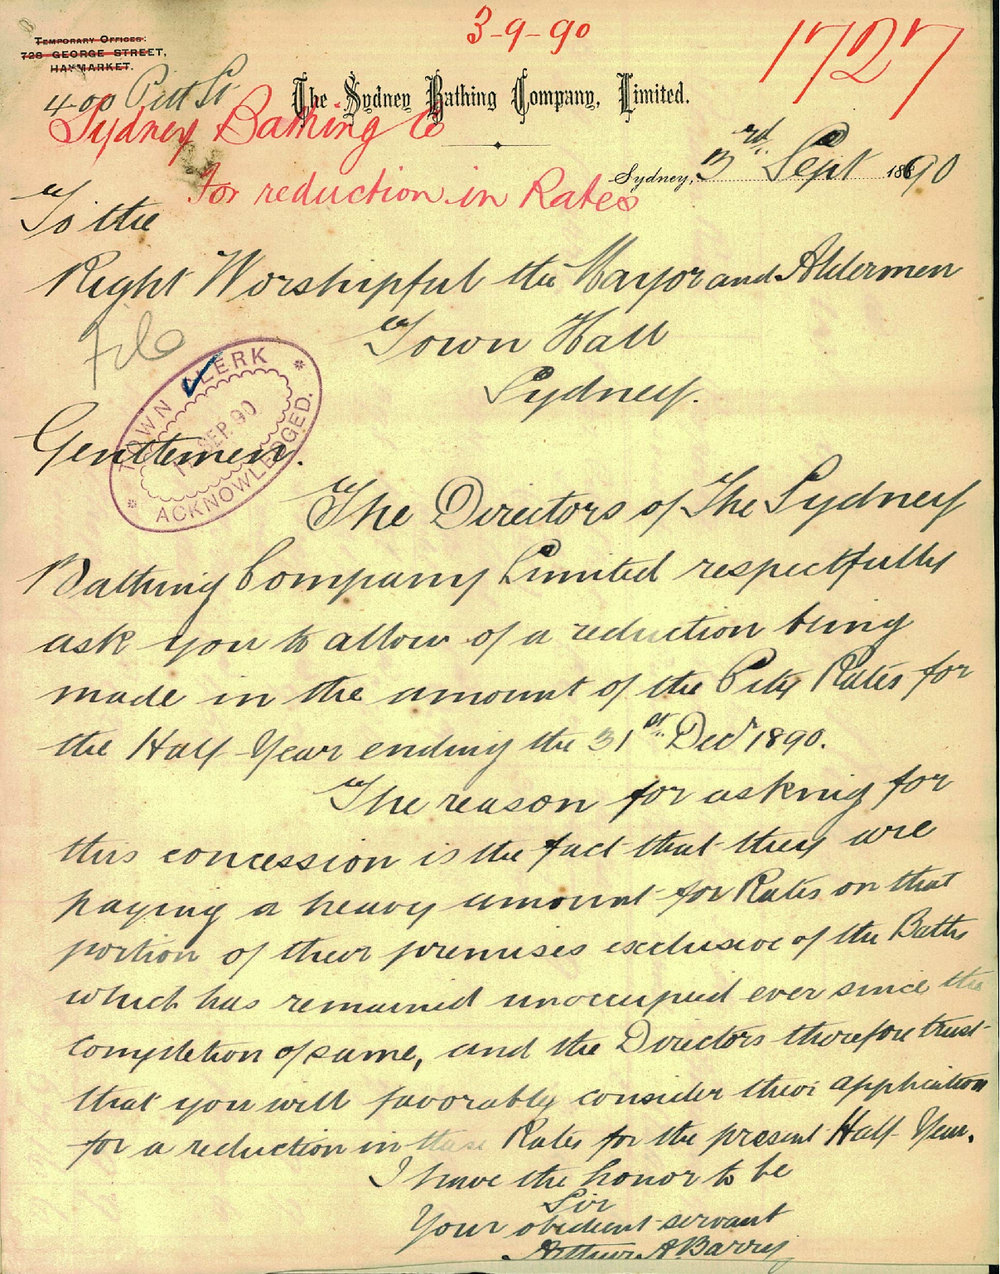 3-9-90
1727
Temporary Offices:
728 GEORGE STREET,
HAYMARKET.
400 Pitt St
The Sydney Bathing Company, Limited.
Sydney Bathing Co
For reduction in Rates
Sydney, 3rd Sept 1890
To the
Right Worshipful the Mayor and Aldermen
Town Hall
Sydney.
File
TOWN CLERK
SEP. 90
ACKNOWLEDGED.
Gentlemen.
The Directors of The Sydney
Bathing Company Limited respectfully
ask you to allow of a reduction being
made in the amount of the City Rates for
the Half Year ending the 31st Decr 1890.
The reason for asking for
this concession is the fact that they are
paying a heavy amount for Rates on that
portion of their premises exclusive of the Baths
which has remained unoccupied ever since the
completion of same, and the Directors therefore trust
that you will favorably consider their application
for a reduction in these Rates for the present Half Year.
I have the honor to be
Sir
Your obedient servant
Arthur A. Barry